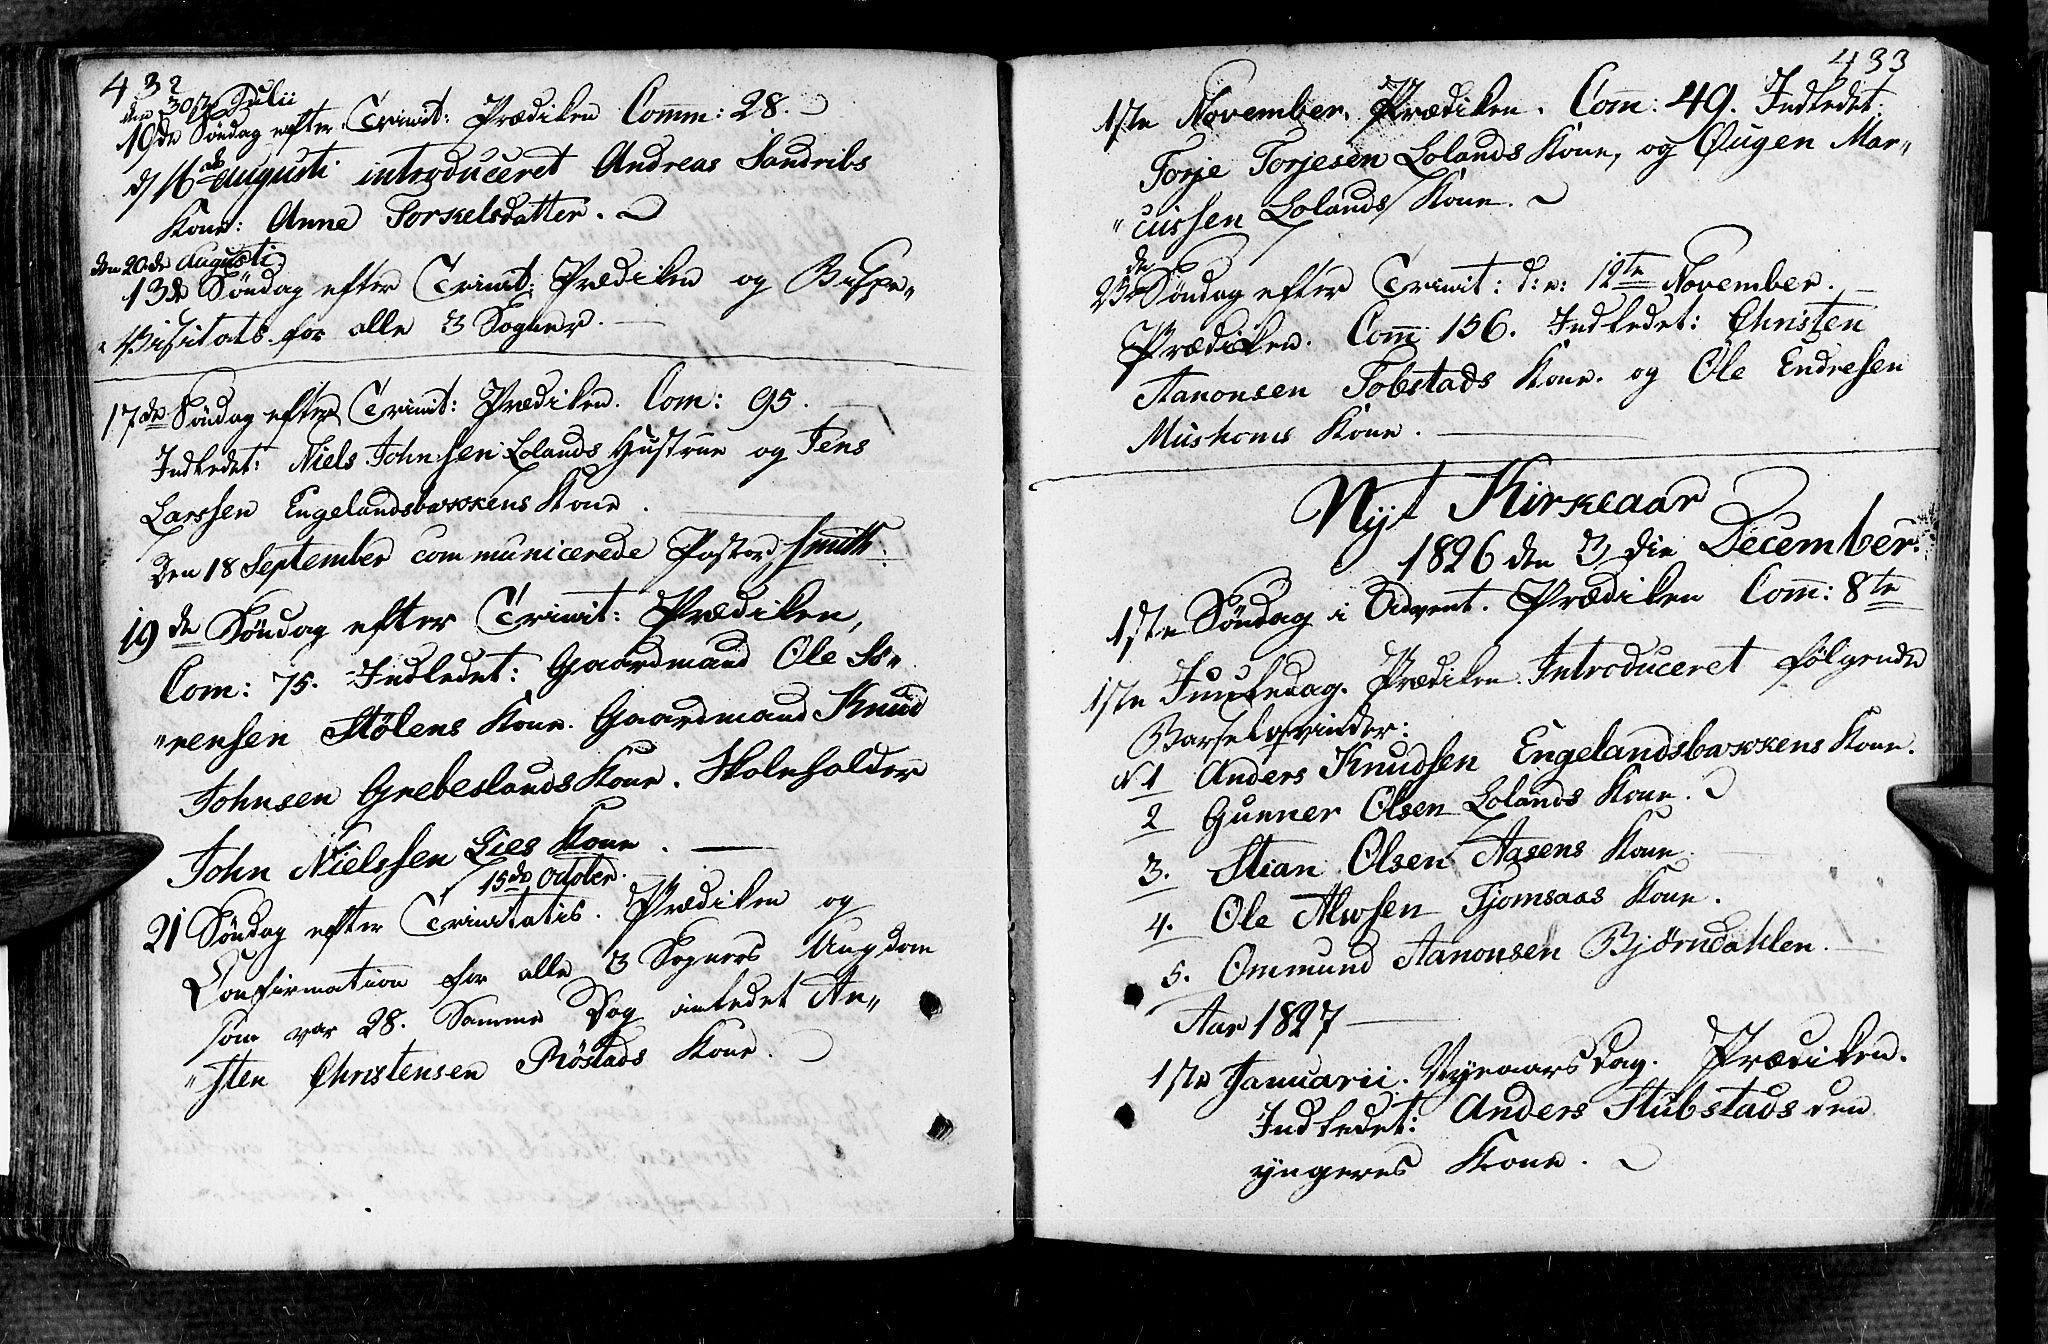 432
den 30te Julii
10de Søndag efter Trinit: Prædiken Comm: 28.
d 16de Augusti introduceret Andreas Sandribs
Kone: Anne Torkelsdatter.
den 20de Augusti
13de Søndag efter Trinit: Prædiken og Bispe„
„Visitats for alle 3 Sogner.
17de Søndag efter Trinit: Prædiken. Com: 95.
Indledet: Niels Johnsen Lolands Hustrue og Jens
Larssen Engelandsbakkens Kone.
Den 18 September communicerede Pastor Smith.
19de Søndag efter Trinit: Prædiken,
Com: 75. Indledet: Gaardmand Ole Sø„
„rensen Stølens Kone. Gaardmand Knud
Johnsen Grebeslands Kone. Skoleholder
John Nielssen Lies Kone.
15de Octobr.
21 Søndag efter Trinitatis. Prædiken og
Confirmation for alle 3 Sognets Ungdom
som var 28. Samme Dag inledet An„
„sten Christensen Røstads Kone.
433
1ste November. Prædiken. Com: 49. Indledet:
Torje Torjesen Lolands Kone, og Øugen Mar„
„cussen Lolands Kone.
23de Søndag efter Trinit: d: e: 12te November.
Prædiken. Com 156. Indledet: Christen
Aanonsen Tobstads Kone. og Ole Endresen
Mushoms Kone.
Nyt Kirkeaar
1826 den 3die December.
1ste Søndag i Advent. Prædiken Com: 8te
1ste Juuledag. Prædiken. Introduceret følgende
Barselqvinder:
N 1 Anders Knudsen Engelandsbakkens Kone.
2 Gunner Olsen Lolands Kone.
3. Stian Olsen Aasens Kone
4. Ole Alwsen Tjomsaas Kone.
5. Ommund Aanonsen Bjørndahlen.
Aar 1827
1ste Januarii. Nyeaars Dag. Prædiken.
Indledet: Anders Stubstads den
yngeres Kone.